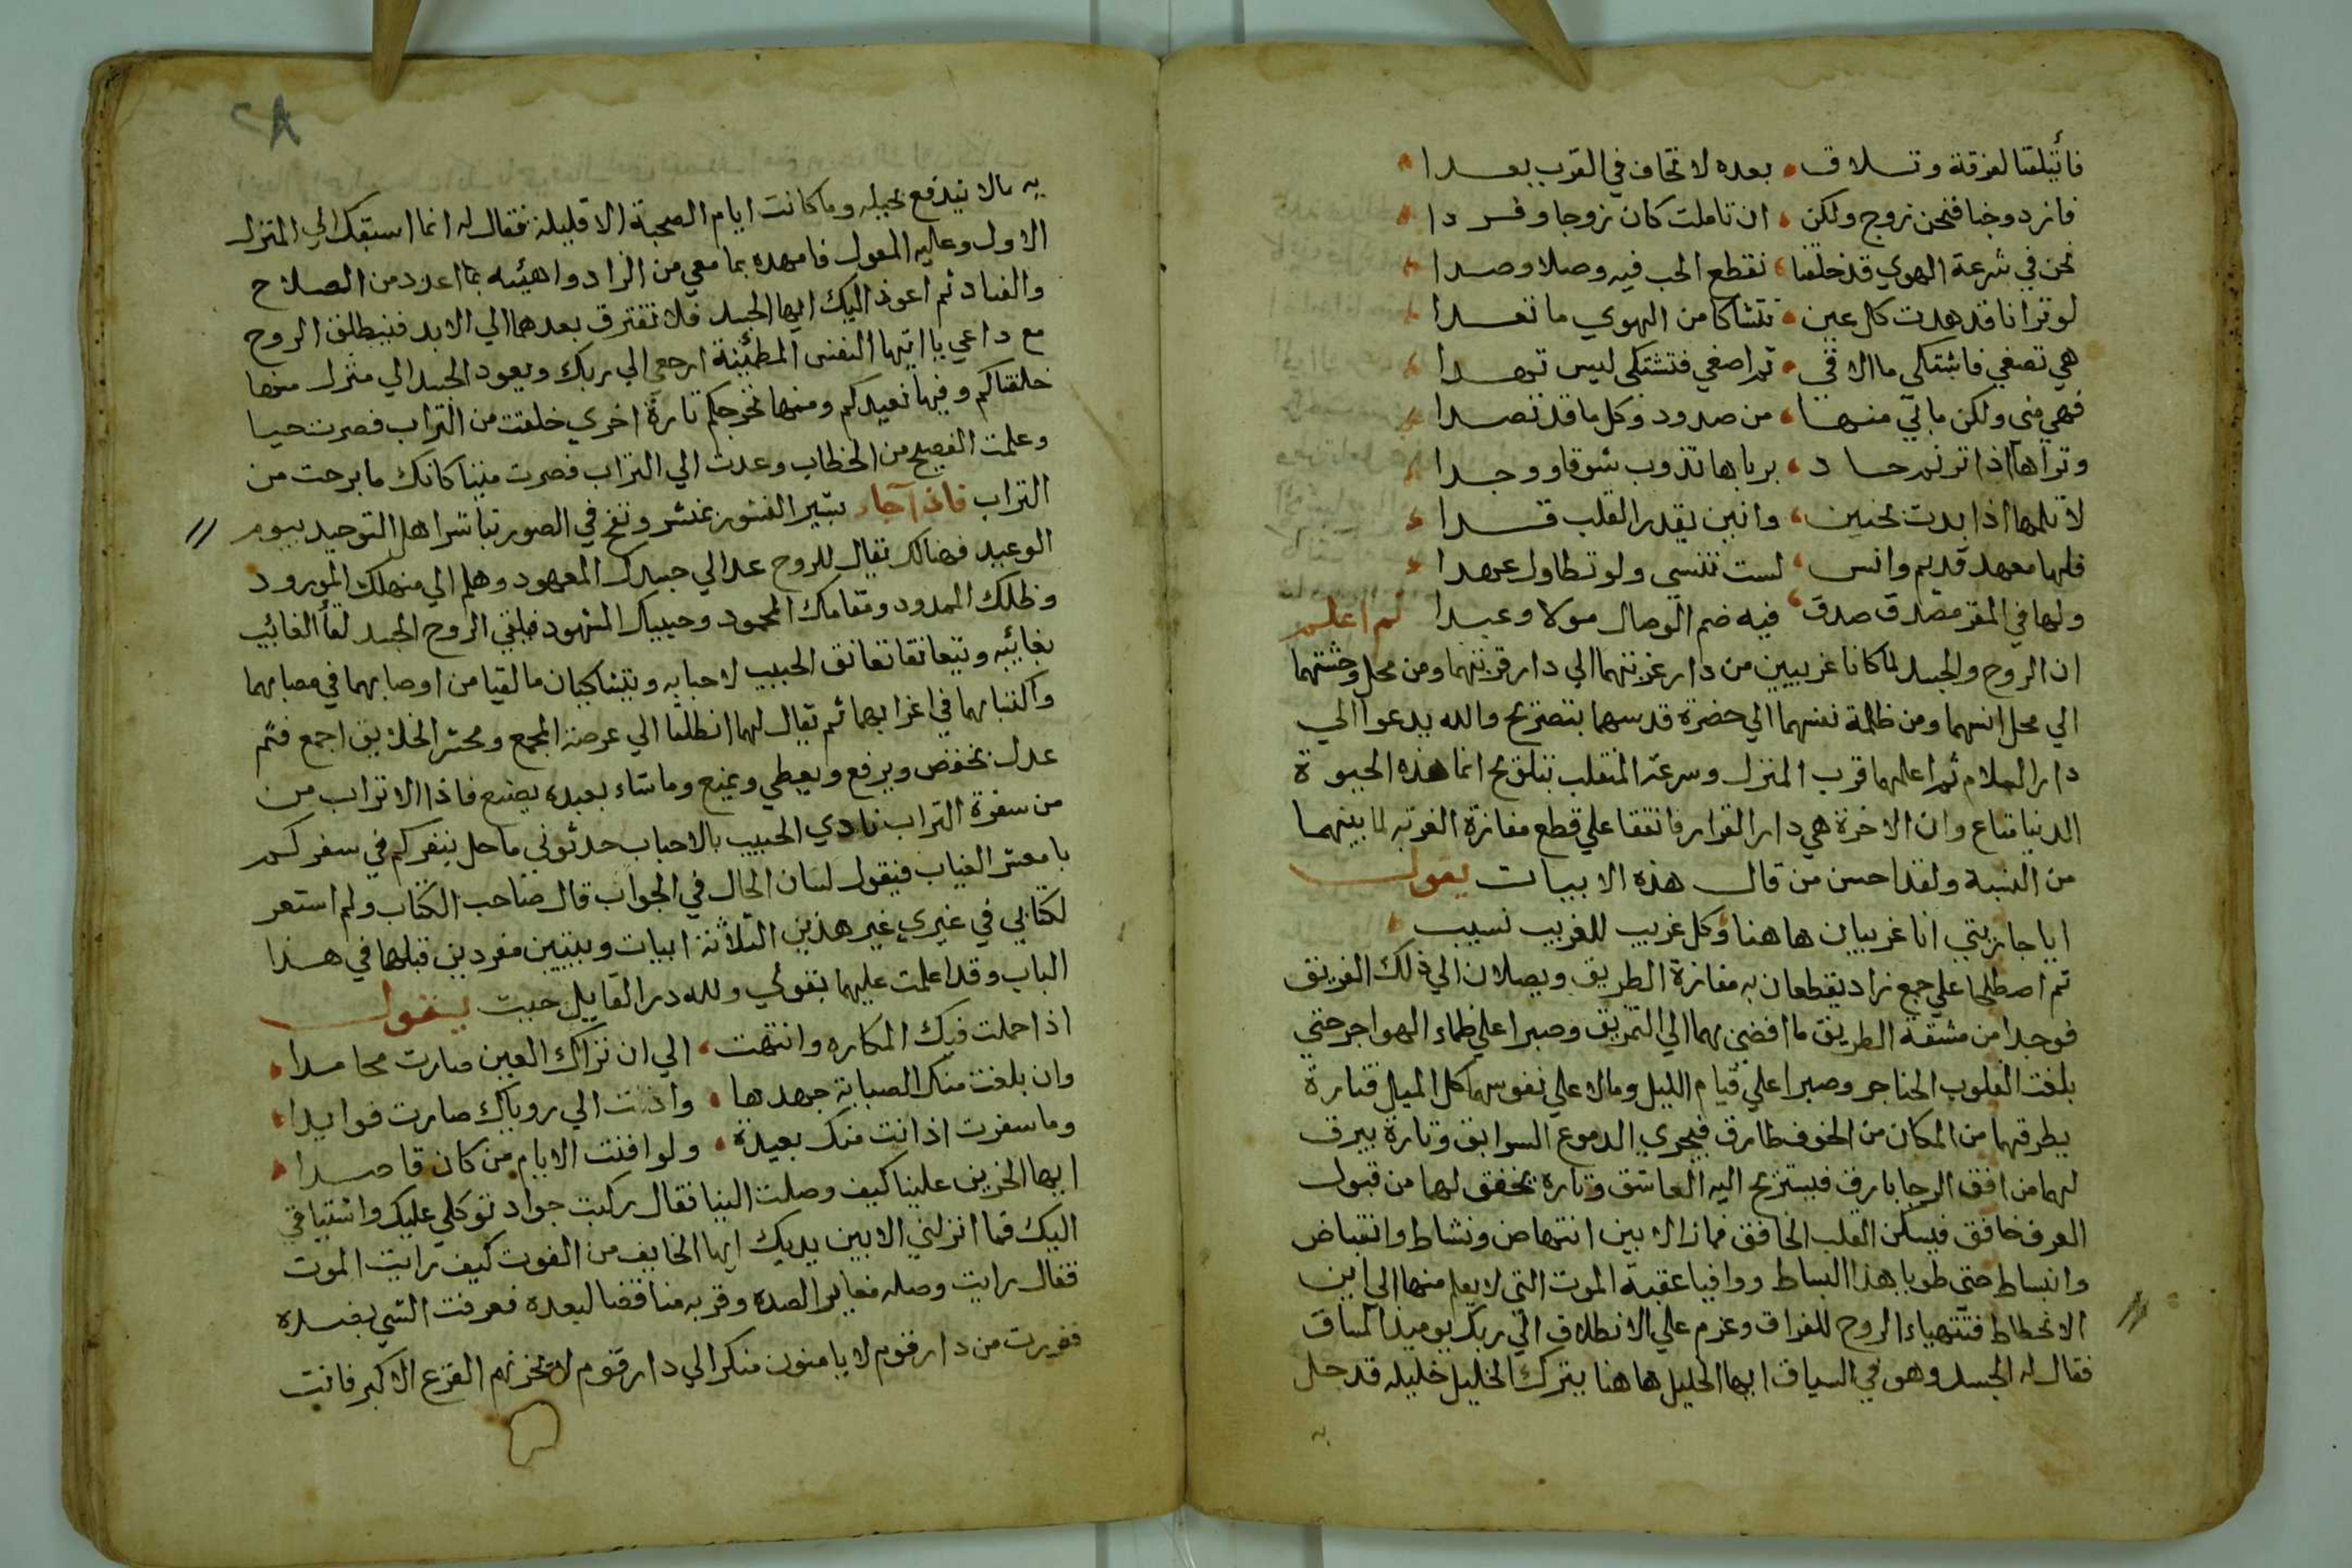 فأتيلقنا لفرقة وتلاق بعده لا تخاف في القرب بعدا
فازدوجنا فنحن زوج ولكن ان تاملت كان زوجا وفردا
نحن في شرعة الهوي قد خلقنا نقطع الحب فيه وصلا وصدا
لو ترانا قد هدت كل عين نتشاكا من الهوي ما تعدا
هي تصغي فاشتكي ما الاقي ثم اصغي فتشتكي ليس تهدا
فهي مني ولكن ما بي منها من صدود وكل ما قد تصدا
وتراها اذا ترنم حاد برباها تذوب شوقا ووجدا
لا تلمها اذا بدت بحنين وانين يقد القلب قدا
فلها معهد قديم وانس لست تنسي ولو تطاول عهدا
ولها في المقر مصدق صدق فيه ضم الوصال مولا وعبدا ثم اعلم
ان الروح والجسد لما كانا غريبين من دار غربتهما الي دار قربتهما ومن محل وحشتهما
الي محل انسهما ومن ظلمة نفسهما الي حضرة قدسهما بتصريح والله يدعوا الي
دار السلام ثم اعلمهما قرب المنزل وسرعة المنقلب بتلويح انما هذه الحيوة
الدنيا متاع وان الاخرة هي دار القرار فاتفقا علي قطع مفازة الغربة لما بينهما
من النسبة ولقد احسن من قال هذه الابيات يقول
ايا جارتي انا غريبان هاهنا وكل غريب للغريب نسيب
ثم اصطلحا علي جمع زاد يقطعان به مفازة الطريق ويصلان الي ذلك الفريق
فوجدا من مشقة الطريق ما افضي بهما الي التمزيق وصبرا علي ظماء الهواجر حتي
بلغت القلوب الحناجر وصبرا علي قيام الليل ومالا علي نفوسهما كل الميل فتارة
يطرقهما من المكان من الخوف طارق فيجري الدموع السوابق وتارة يبرق
لهما من افق الرجا بارق فيستريح اليه العاشق وتارة يخفق لهما من قبول
العرف خافق فيسكن القلب الخافق فما زالا بين انتهاض ونشاط وانقباض
وانبساط حتي طويا هذا البساط ووافيا عقبة الموت التي لا يعلم منها الي اين
الانحطاط فتتهياء الروح للفراق وعزم علي الانطلاق الي ربك يوميذ المساق
فقال له الجسد وهو في السياق ايها الخليل هاهنا يترك الخليل خليله قد حل
به
٢٨
به مالا يندفع بحيله وما كانت ايام الصحبة الا قليلة فقال له انما استبقك الي المنزل
الاول وعليه المعول فامهده بما معي من الزاد واهيئه بما اعدد من الصلاح
والفساد ثم اعود اليك ايها الجسد فلا نفترق بعدها الي الابد فينطلق الروح
مع داعي يا ايتها النفس المطمئنة ارجعي الي ربك ويعود الجسد الي منزل منها
خلقناكم وفيها نعيدكم ومنها نخرجكم تارة اخري خلقت من التراب فصرت حيا
وعلمت الفصيح من الخطاب وعدت الي التراب فصرت ميتا كانك ما برحت من
التراب فاذا جاء بشير النشور بمنشر ونفخ في الصور تباشر اهل التوحيد بيوم
الوعيد فهنالك يقال للروح عد الي جسدك المعهود وهلم الي منهلك المورود
وظلك الممدود ومقامك المحمود وحبيبك المشهود فيلقي الروح الجسد لقا الغائب
بغائبه ويتعانقا تعانق الحبيب لاحبابه ويتشاكيان ما لقيا من اوصابهما في مصابهما
واكتبابهما في اغرابهما ثم يقال لهما انطلقا الي عرصة المجمع ومحشر الخلايق اجمع فثم
عدل يخفض ويرفع ويعطي ويمنع وما شاء بعبده يصنع فاذا الاتراب من
من سفرة التراب نادي الحبيب بالاحباب حدثوني ما حل بنفركم في سفركم
يا معشر الغياب فيقول لسان الحال في الجواب قال صاحب الكتاب ولم استعر
لكتابي في غيري غير هذين الثلاثة ابيات وبيتين مفردين قبلها في هذا
الباب وقد اعلمت عليهما بقولي ولله در القايل حيث يقول
اذا حملت فيك المكاره وانتهت الي ان تراك العين صارت محامدا
وان بلغت منك الصبابة جهدها وادت الي روياك صارت فوايدا
وما سفرت اذ انت منك بعيدة ولو افنت الايام من كان قاصدا
ايها الحزين علينا كيف وصلت الينا فقال ركبت جواد توكلي عليك واشتياقي
اليك فما انزلني الا بين يديك ايها الخايف من الفوت كيف رايت الموت
فقال رايت وصله مغاير الصده وقربه مناقضا لبعده فعرفت الشي بضده
ففررت من دار قوم لا يامنون منكرا الي دار قوم لا يحزنهم الفزع الاكبر فانت